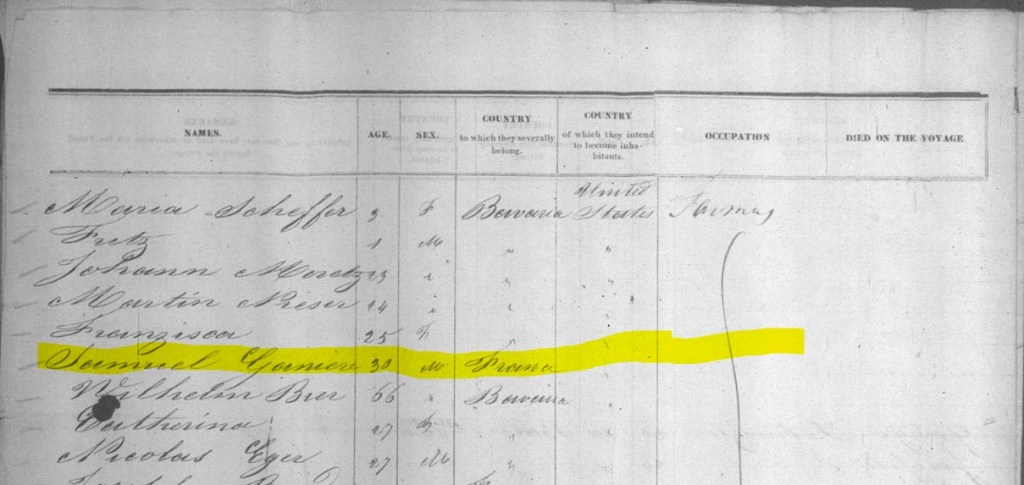 NAMES. AGE. SEX. COUNTRY to which they severally belong. COUNTRY of which they intend to become inha-bitants. OCCUPATION DIED ON THE VOYAGE
Maria Scheffer 3 F Bavaria United States
Fritz 1 M " "
Johann " " "
Martin 24 " " "
Franzisca 25 F "
Samuel Ganiere 30 M
Wilhelm 66 " Bavaria "
Catherina 27 F "
Nicolas Eger 27 M "